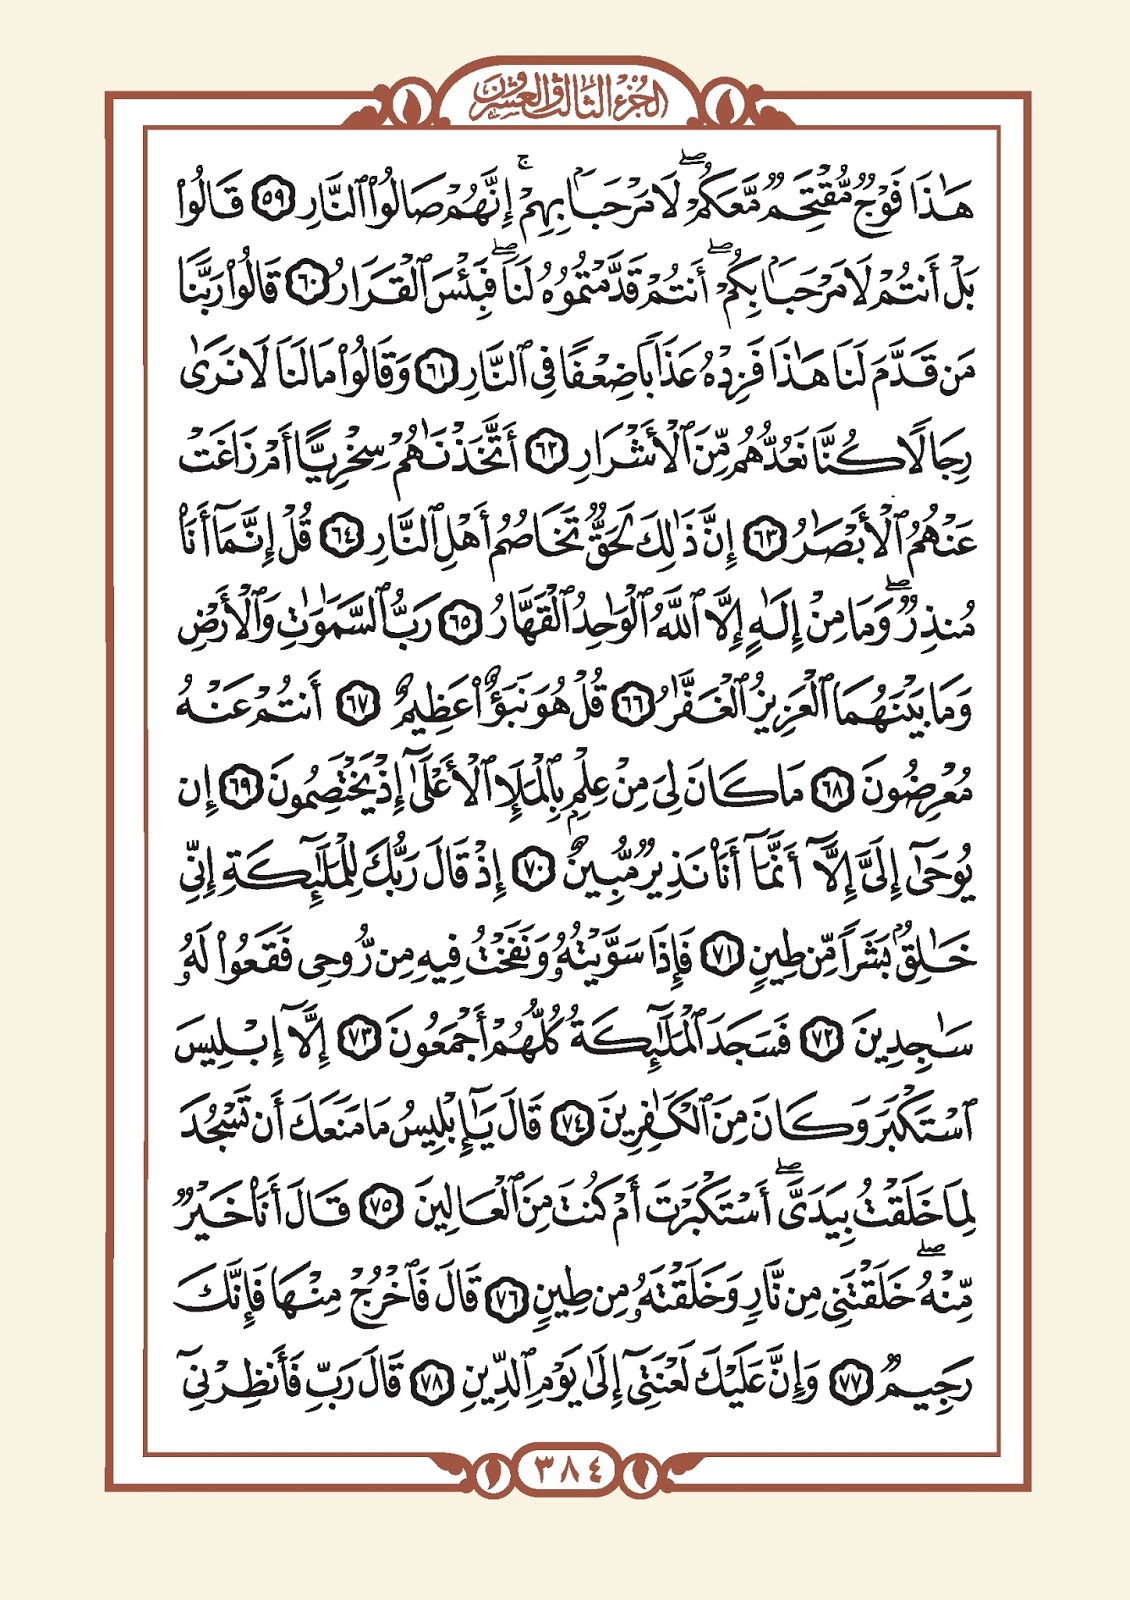 الجزء الثالث والعشرون
هَٰذَا فَوۡجٞ مُّقۡتَحِمٞ مَّعَكُمۡۖ لَا مَرۡحَبَۢا بِهِمۡۚ إِنَّهُمۡ صَالُواْ ٱلنَّارِ ٥٩ قَالُواْ
بَلۡ أَنتُمۡ لَا مَرۡحَبَۢا بِكُمۡۖ أَنتُمۡ قَدَّمۡتُمُوهُ لَنَاۖ فَبِئۡسَ ٱلۡقَرَارُ ٦٠ قَالُواْ رَبَّنَا
مَن قَدَّمَ لَنَا هَٰذَا فَزِدۡهُ عَذَابٗا ضِعۡفٗا فِي ٱلنَّارِ ٦١ وَقَالُواْ مَا لَنَا لَا نَرَىٰ
رِجَالٗا كُنَّا نَعُدُّهُم مِّنَ ٱلۡأَشۡرَارِ ٦٢ أَتَّخَذۡنَٰهُمۡ سِخۡرِيًّا أَمۡ زَاغَتۡ
عَنۡهُمُ ٱلۡأَبۡصَٰرُ ٦٣ إِنَّ ذَٰلِكَ لَحَقّٞ تَخَاصُمُ أَهۡلِ ٱلنَّارِ ٦٤ قُلۡ إِنَّمَآ أَنَا۠
مُنذِرٞۖ وَمَا مِنۡ إِلَٰهٍ إِلَّا ٱللَّهُ ٱلۡوَٰحِدُ ٱلۡقَهَّارُ ٦٥ رَبُّ ٱلسَّمَٰوَٰتِ وَٱلۡأَرۡضِ
وَمَا بَيۡنَهُمَا ٱلۡعَزِيزُ ٱلۡغَفَّٰرُ ٦٦ قُلۡ هُوَ نَبَؤٌاْ عَظِيمٌ ٦٧ أَنتُمۡ عَنۡهُ
مُعۡرِضُونَ ٦٨ مَا كَانَ لِيَ مِنۡ عِلۡمِۭ بِٱلۡمَلَإِ ٱلۡأَعۡلَىٰٓ إِذۡ يَخۡتَصِمُونَ ٦٩ إِن
يُوحَىٰٓ إِلَيَّ إِلَّآ أَنَّمَآ أَنَا۠ نَذِيرٞ مُّبِينٌ ٧٠ إِذۡ قَالَ رَبُّكَ لِلۡمَلَٰٓئِكَةِ إِنِّي
خَٰلِقُۢ بَشَرٗا مِّن طِينٖ ٧١ فَإِذَا سَوَّيۡتُهُۥ وَنَفَخۡتُ فِيهِ مِن رُّوحِي فَقَعُواْ لَهُۥ
سَٰجِدِينَ ٧٢ فَسَجَدَ ٱلۡمَلَٰٓئِكَةُ كُلُّهُمۡ أَجۡمَعُونَ ٧٣ إِلَّآ إِبۡلِيسَ
ٱسۡتَكۡبَرَ وَكَانَ مِنَ ٱلۡكَٰفِرِينَ ٧٤ قَالَ يَٰٓإِبۡلِيسُ مَا مَنَعَكَ أَن تَسۡجُدَ
لِمَا خَلَقۡتُ بِيَدَيَّۖ أَسۡتَكۡبَرۡتَ أَمۡ كُنتَ مِنَ ٱلۡعَالِينَ ٧٥ قَالَ أَنَا۠ خَيۡرٞ
مِّنۡهُۖ خَلَقۡتَنِي مِن نَّارٖ وَخَلَقۡتَهُۥ مِن طِينٖ ٧٦ قَالَ فَٱخۡرُجۡ مِنۡهَا فَإِنَّكَ
رَجِيمٞ ٧٧ وَإِنَّ عَلَيۡكَ لَعۡنَتِيٓ إِلَىٰ يَوۡمِ ٱلدِّينِ ٧٨ قَالَ رَبِّ فَأَنظِرۡنِيٓ
٣٨٤